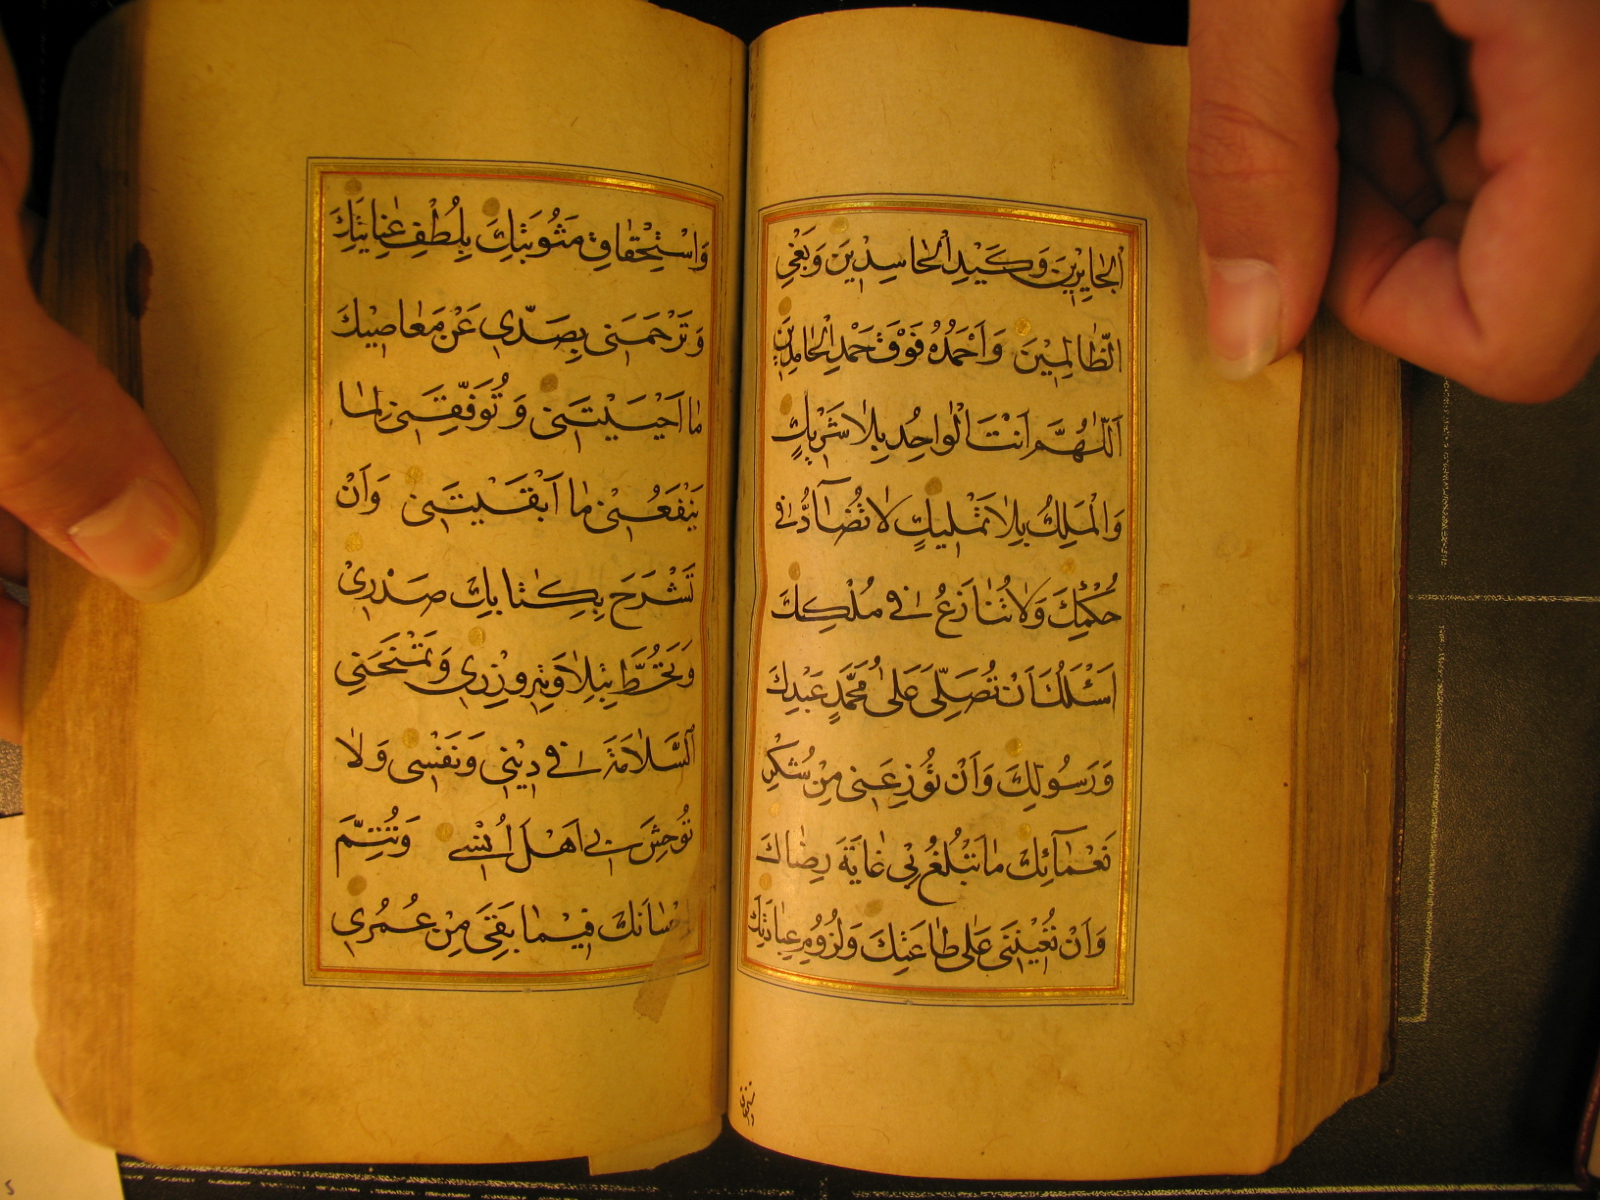 الْجٰایِرِیْنَ وَكَیْدِ الْحٰاسِدِیْنَ وَبَغْیِ
الظّٰالِمِیْنَ وَاَحْمَدُهُ فَوْقَ حَمْدِ الْحٰامِدِیْنَ
اَللّٰهُمَّ اَنْتَ الْوٰاحِدُ بِلٰا شَرِیْكٍ
وَالْمَلِكُ بِلٰا تَمْلِیْكٍ لٰا تُضٰآدُّ فِی
حُكْمِكَ وَلٰا تُنٰازَعُ فِی مُلْكِكَ
اَسْئَلُكَ اَنْ تُصَلِّیَ عَلٰی مُحَمَّدٍ عَبْدِكَ
وَرَسُولِكَ وَاَنْ تُوْزِعَنِی مِنْ شُكْرِ
نَعْمٰآئِكَ مٰا تَبْلُغُ بِی غٰایَةَ رِضٰاكَ
وَاَنْ تُعِیْنَنِی عَلٰی طٰاعَتِكَ وَلُزُوْمِ عِبٰادَتِكَ
وَاسْتِحْقٰاقِ
وَاسْتِحْقٰاقِ مَثُوْبَتِكَ بِلُطْفِ عِنٰایَتِكَ
وَتَرْحَمَنِی بِصَدِّی عَنْ مَعٰاصِیْكَ
مٰا اَحْیَیْتَنِی وَتُوَفِّقَنِی لِمٰا
یَنْفَعُنِی مٰا اَبْقَیْتَنِی وَاَنْ
تَشْرَحَ بِكِتٰابِكَ صَدْرِی
وَتَحُطَّ بِتِلٰاوَتِهِ وِزْرِی وَتَمْنَحَنِی
السَّلٰامَةَ فِی دِیْنِی وَنَفْسِی وَلٰا
تُوْحِشَ بِی اَهْلَ اُنْسِی وَتُتِمَّ
اِحْسٰانَكَ فِیْمٰا بَقِیَ مِنْ عُمُرِی